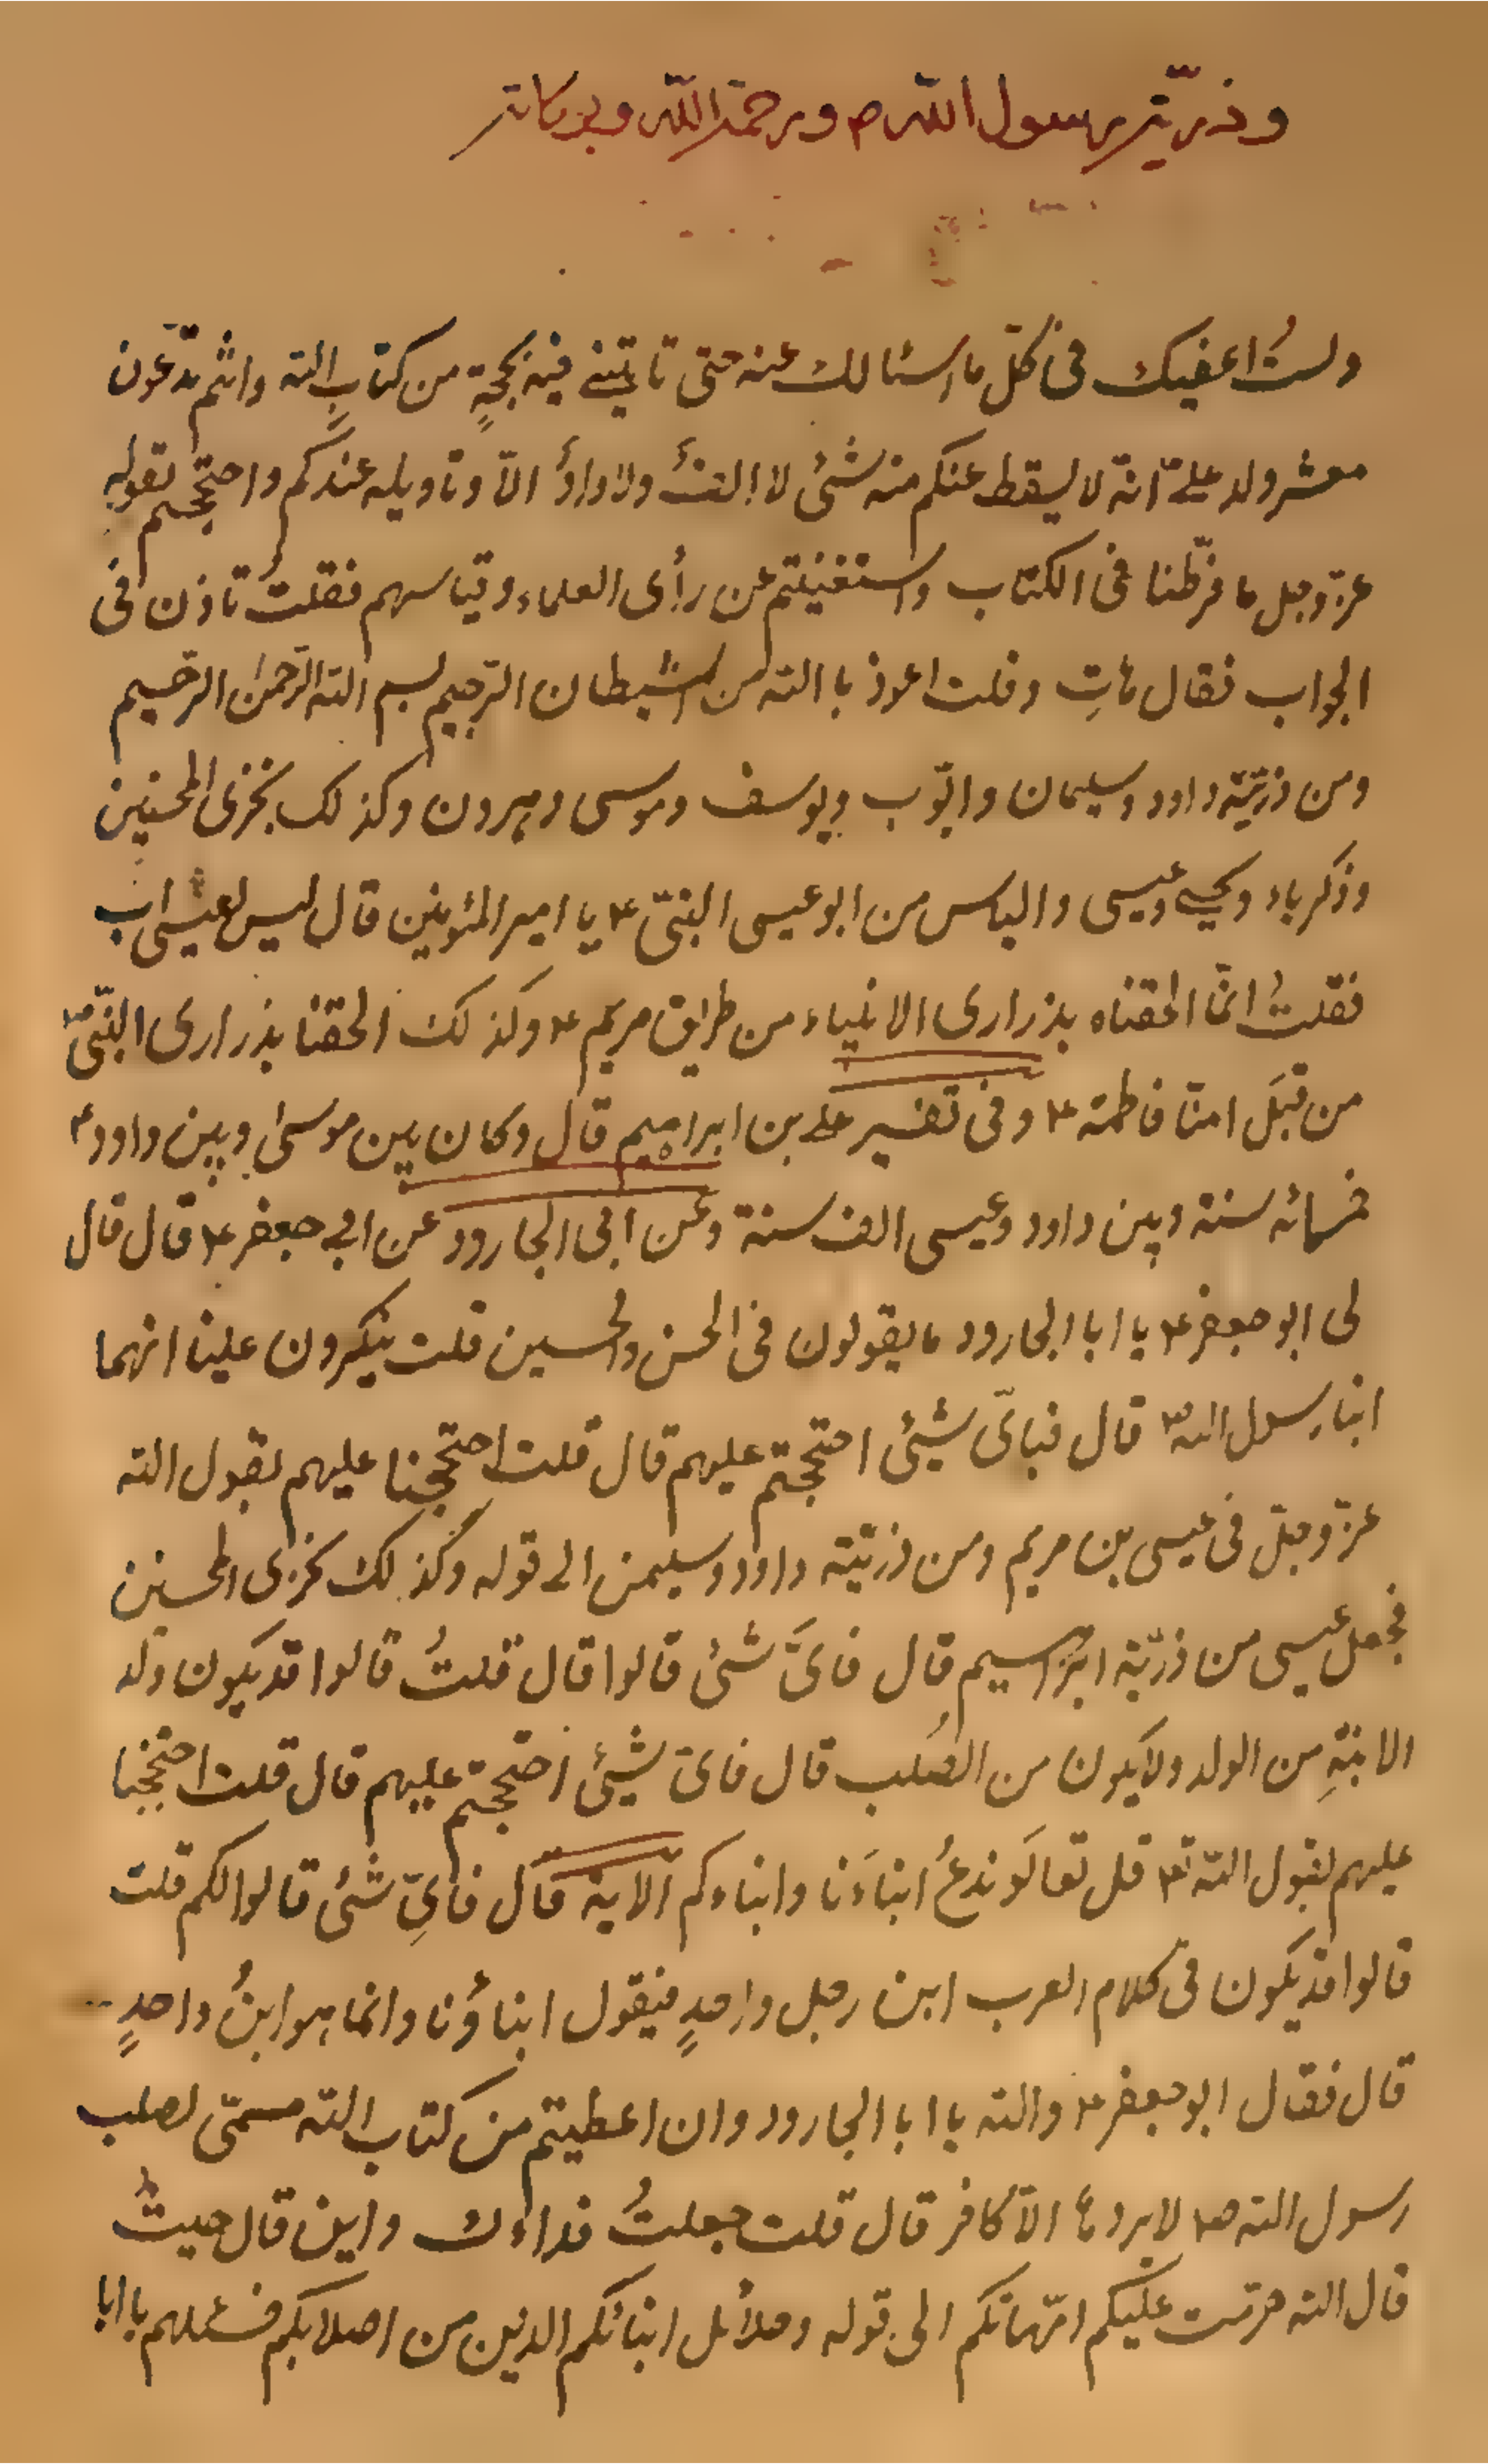 وذريّة رسول الله ص ورحمة الله وبركاته
ولستُ اعفيك فى كلّ ما اسئالك عنه حتى تاتينے فيه بحجةٍ من كتابِ الله وانتم تدّعون
معشر ولد علے انّه لا يسقط عنكم منه شئى لا الفٌ ولا واوٌ الاّ وتاويله عندكم واحتججتم بقوله
عزّ وجل ما فرّطنا فى الكتاب واستغنيتم عن رأى العلماء وقياسهم فقلتُ تاذن فى
الجواب فقال هاتِ وقلت اعوذ با الله من الشيطان الرّجيم بسم الله الرّحمٰن الرّحيم
ومن ذرّيّته داود وسليمان وايّوب ويوسف وموسى وهرون وكذلك نجزى المحسنين
وذكرياء ويحيے وعيسى والياس من ابو عيسى النبىّ ع يا امير المئومنين قال ليس لعيسى اب
فقلتُ انّما الحقناه بذرارى الانبياء من طريق مريم ع وكذلك الحقنا بذرارى النّبىّ ص
من قبَل امنا فاطمة ع وفى تفسير علے بن ابراهيم قال وكان بين موسىٰ وبين داود ع
خمسمائه سنة وبين داود وعيسى الف سنة وعن ابى الجارود عن ابے جعفر ع قال قال
لى ابو جعفر ع يا ابا الجارود ما يقولون فى الحسن والحسين قلت ينكرون علينا انهما
ابنا رسول الله ص قال فباىّ شيئى احتججتم عليهم قال قلت احتججنا عليهم بقول الله
عزّ وجلّ فى عيسى بن مريم ومن ذرّيّته داود وسليمن الے قوله وكذلك نجزى المحسنين
فجعل عيسى من ذرّيّة ابراهيم قال فاىَّ شئى قالوا قال قلتُ قالوا قد يكون ولد
الابنةِ من الولد ولا يكون من الصُلب قال فاىّ شيئى احتججتم عليهم قال قلت احتججنا
عليهم بقول الله تع قل تعالَو ندعُ ابناءَنا وابناءكم الآية قال فاىِّ شئى قالوا لكم قلت
قالوا قد يكون فى كلام العرب ابن رجل واحدٍ فيقول ابناؤنا وانما هو ابنُ واحدٍ
قال فقال ابو جعفر ع والله يا ابا الجارود وان اعطيتم من كتاب الله مسمّى لصلب
رسول الله ص لا يردها الاّ كافر قال قلت جعلتُ فداءك واين قال حيثُ
قال الله حرّمت عليكم امّهاتكم الى قوله وحلائل ابنائكم الذين من اصلابكم فسئلهم يا ابا